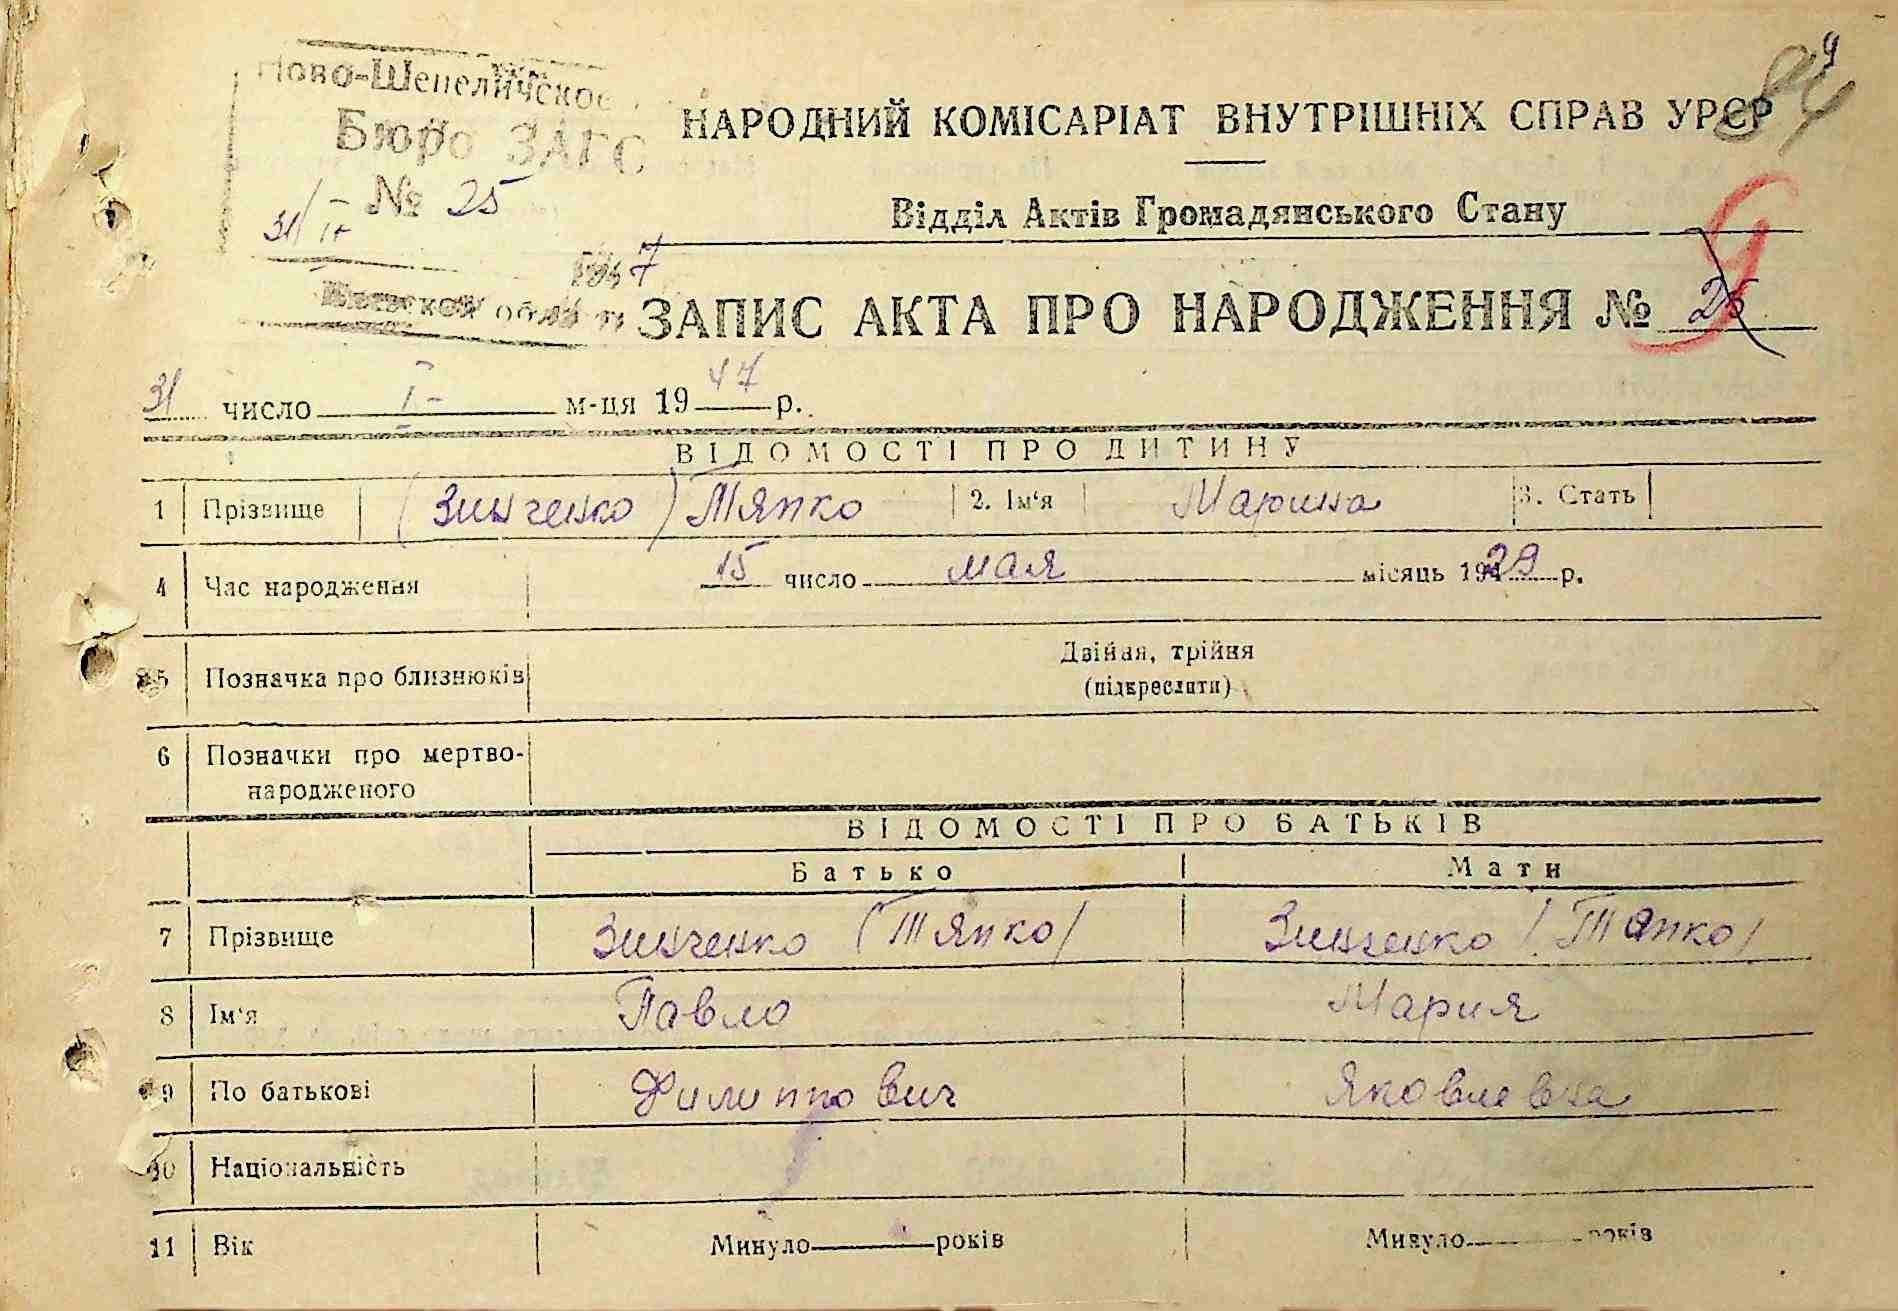 Ново-Шепеличское
Бюро ЗАГС
№ 25
31/I
1947
области
84
НАРОДНИЙ КОМІСАРІАТ ВНУТРІШНІХ СПРАВ УРСР
Відділ Актів Громадянського Стану
ЗАПИС АКТА ПРО НАРОДЖЕННЯ № 25 9
31 число I м-ця 1947 р.
ВІДОМОСТІ ПРО ДИТИНУ
1 Прізвище (Зинченко) Тяпко 2. Ім'я Марина 3. Стать
4 Час народження 15 число мая місяць 1929 р.
5 Позначка про близнюків Двійня, трійня
(підкреслити)
6 Позначки про мертво-
народженого
ВІДОМОСТІ ПРО БАТЬКІВ
Батько Мати
7 Прізвище Зинченко (Тяпко) Зинченко (Тяпко)
8 Ім'я Павло Мария
9 По батькові Филиппович Яковлевна
10 Національність
11 Вік Минуло років Минуло років